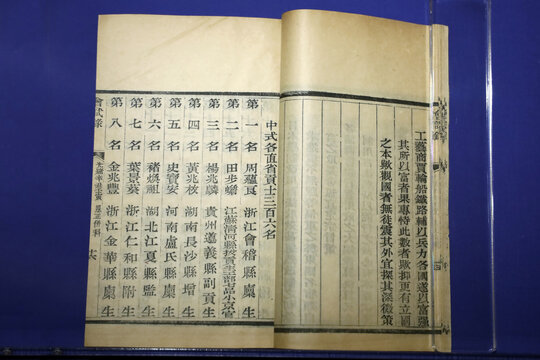 工藝商賈輪船鐵路輔以兵力各國遂以富強
其所以富者果專恃此數者歟抑更有立國
之本歟觀國者無徒震其外宜探其深微策
中式各直省貢士三百六名
第一名 周蘊良 浙江會稽縣廩生
第二名 田步蟾 江蘇清河縣
第三名 楊兆麟 貴州遵義縣副貢生
第四名 黃兆枚 湖南長沙縣增生
第五名 史寶安 河南盧氏縣廩生
第六名 褚煥祖 湖北江夏縣監生
第七名 葉景葵 浙江仁和縣附生
第八名 金兆豐 浙江金華縣廩生
會試錄